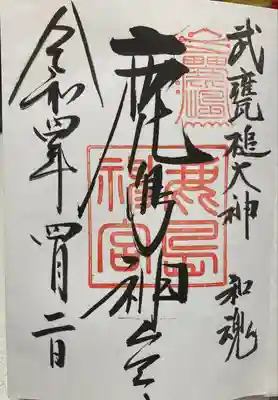 武甕槌大神 和魂
鹿島神宮
鹿島神宮
令和四年 四月二日